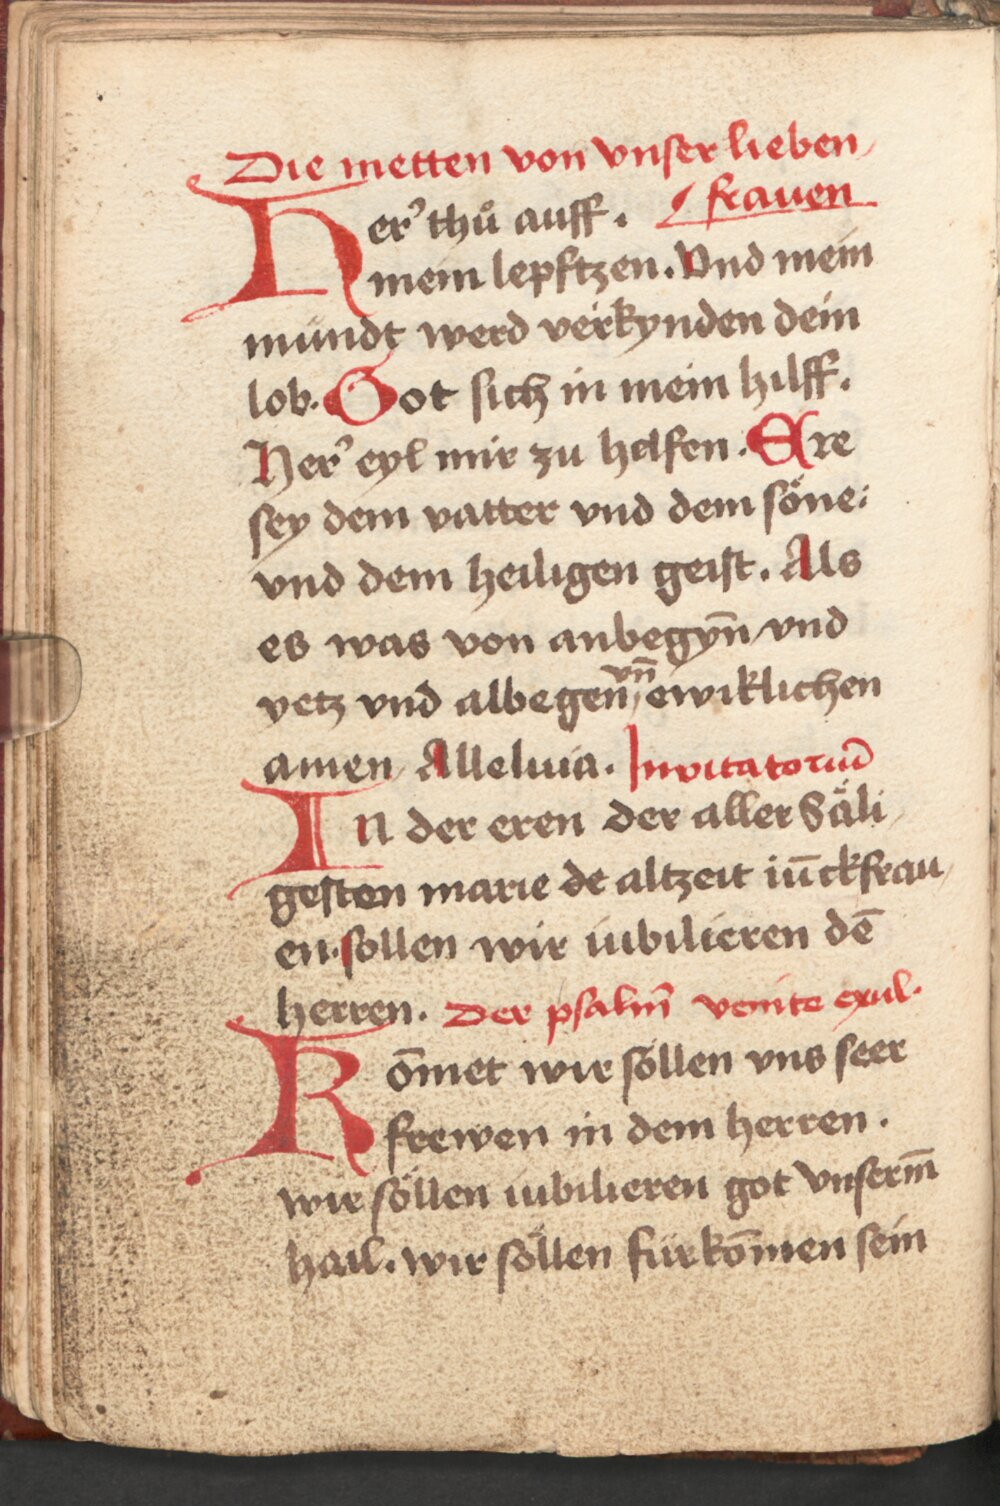 Die metten von vnser lieben
frauen
Her' thů auff.
mein lepftzen. Vnd mein
mundt werd verkynden dein
lob. Got sich in mein hilff.
Her' eyl mir zu helfen. Ere
sey dem vatter vnd dem söne:
vnd dem heiligen geist. Als
es was von anbegyn̄ vnd
yetz vnd albegen, vn̄ ewiklichen
amen Alleluia. Invitatoriū
IN der eren der aller Säli
gesten marie de altzeit iūckfrau
en. sollen wir iubilieren dē
herren. Der psalm̄ venite exul.
Kōmet wir söllen vns seer
frewen in dem herren.
wir söllen iubilieren got vnserm̄
hail. wir söllen fürkōmen sein